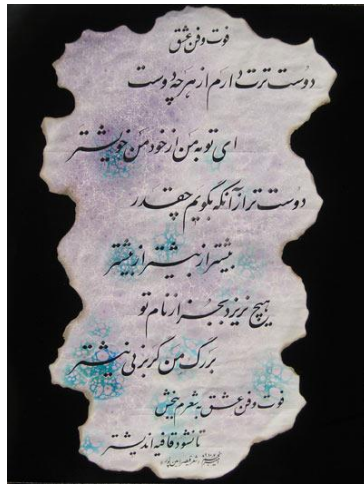 فوت و فن عشق
دوست ترت دارم از هر چه دوست
ای تو به من از خود من خویشتر
دوست تر از آنکه بگویم چقدر
بیشتر از بیشتر از بیشتر
هیچ نریزد بجز از نام تو
بر رگ من گر بزنی نیشتر
فوت و فن عشق به شعرم ببخش
تا نشود قافیه اندیشتر